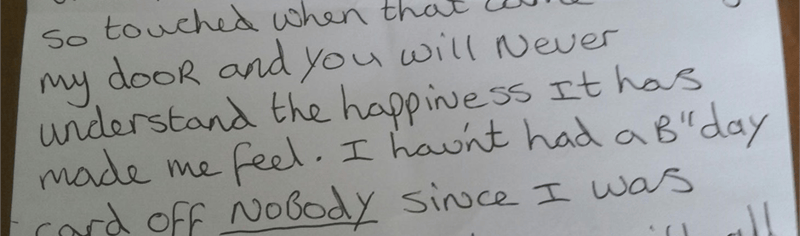 so touched when that came
my door and you will never
understand the happiness It has
made me feel. I hav'nt had a B"day
card off NOBODY since I was
all